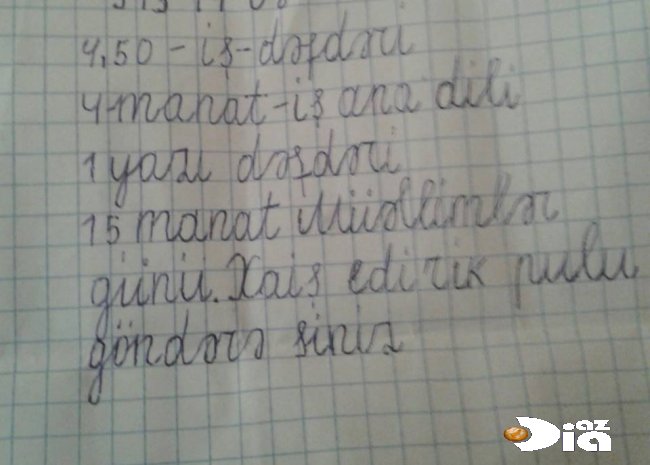 4,50 - iş - dəfdəri
4 manat - iş ana dili
1 yazı dəfdəri
15 manat Müəllimlər
günü. Xaiş edirik pulu
göndərə siniz
Dia az